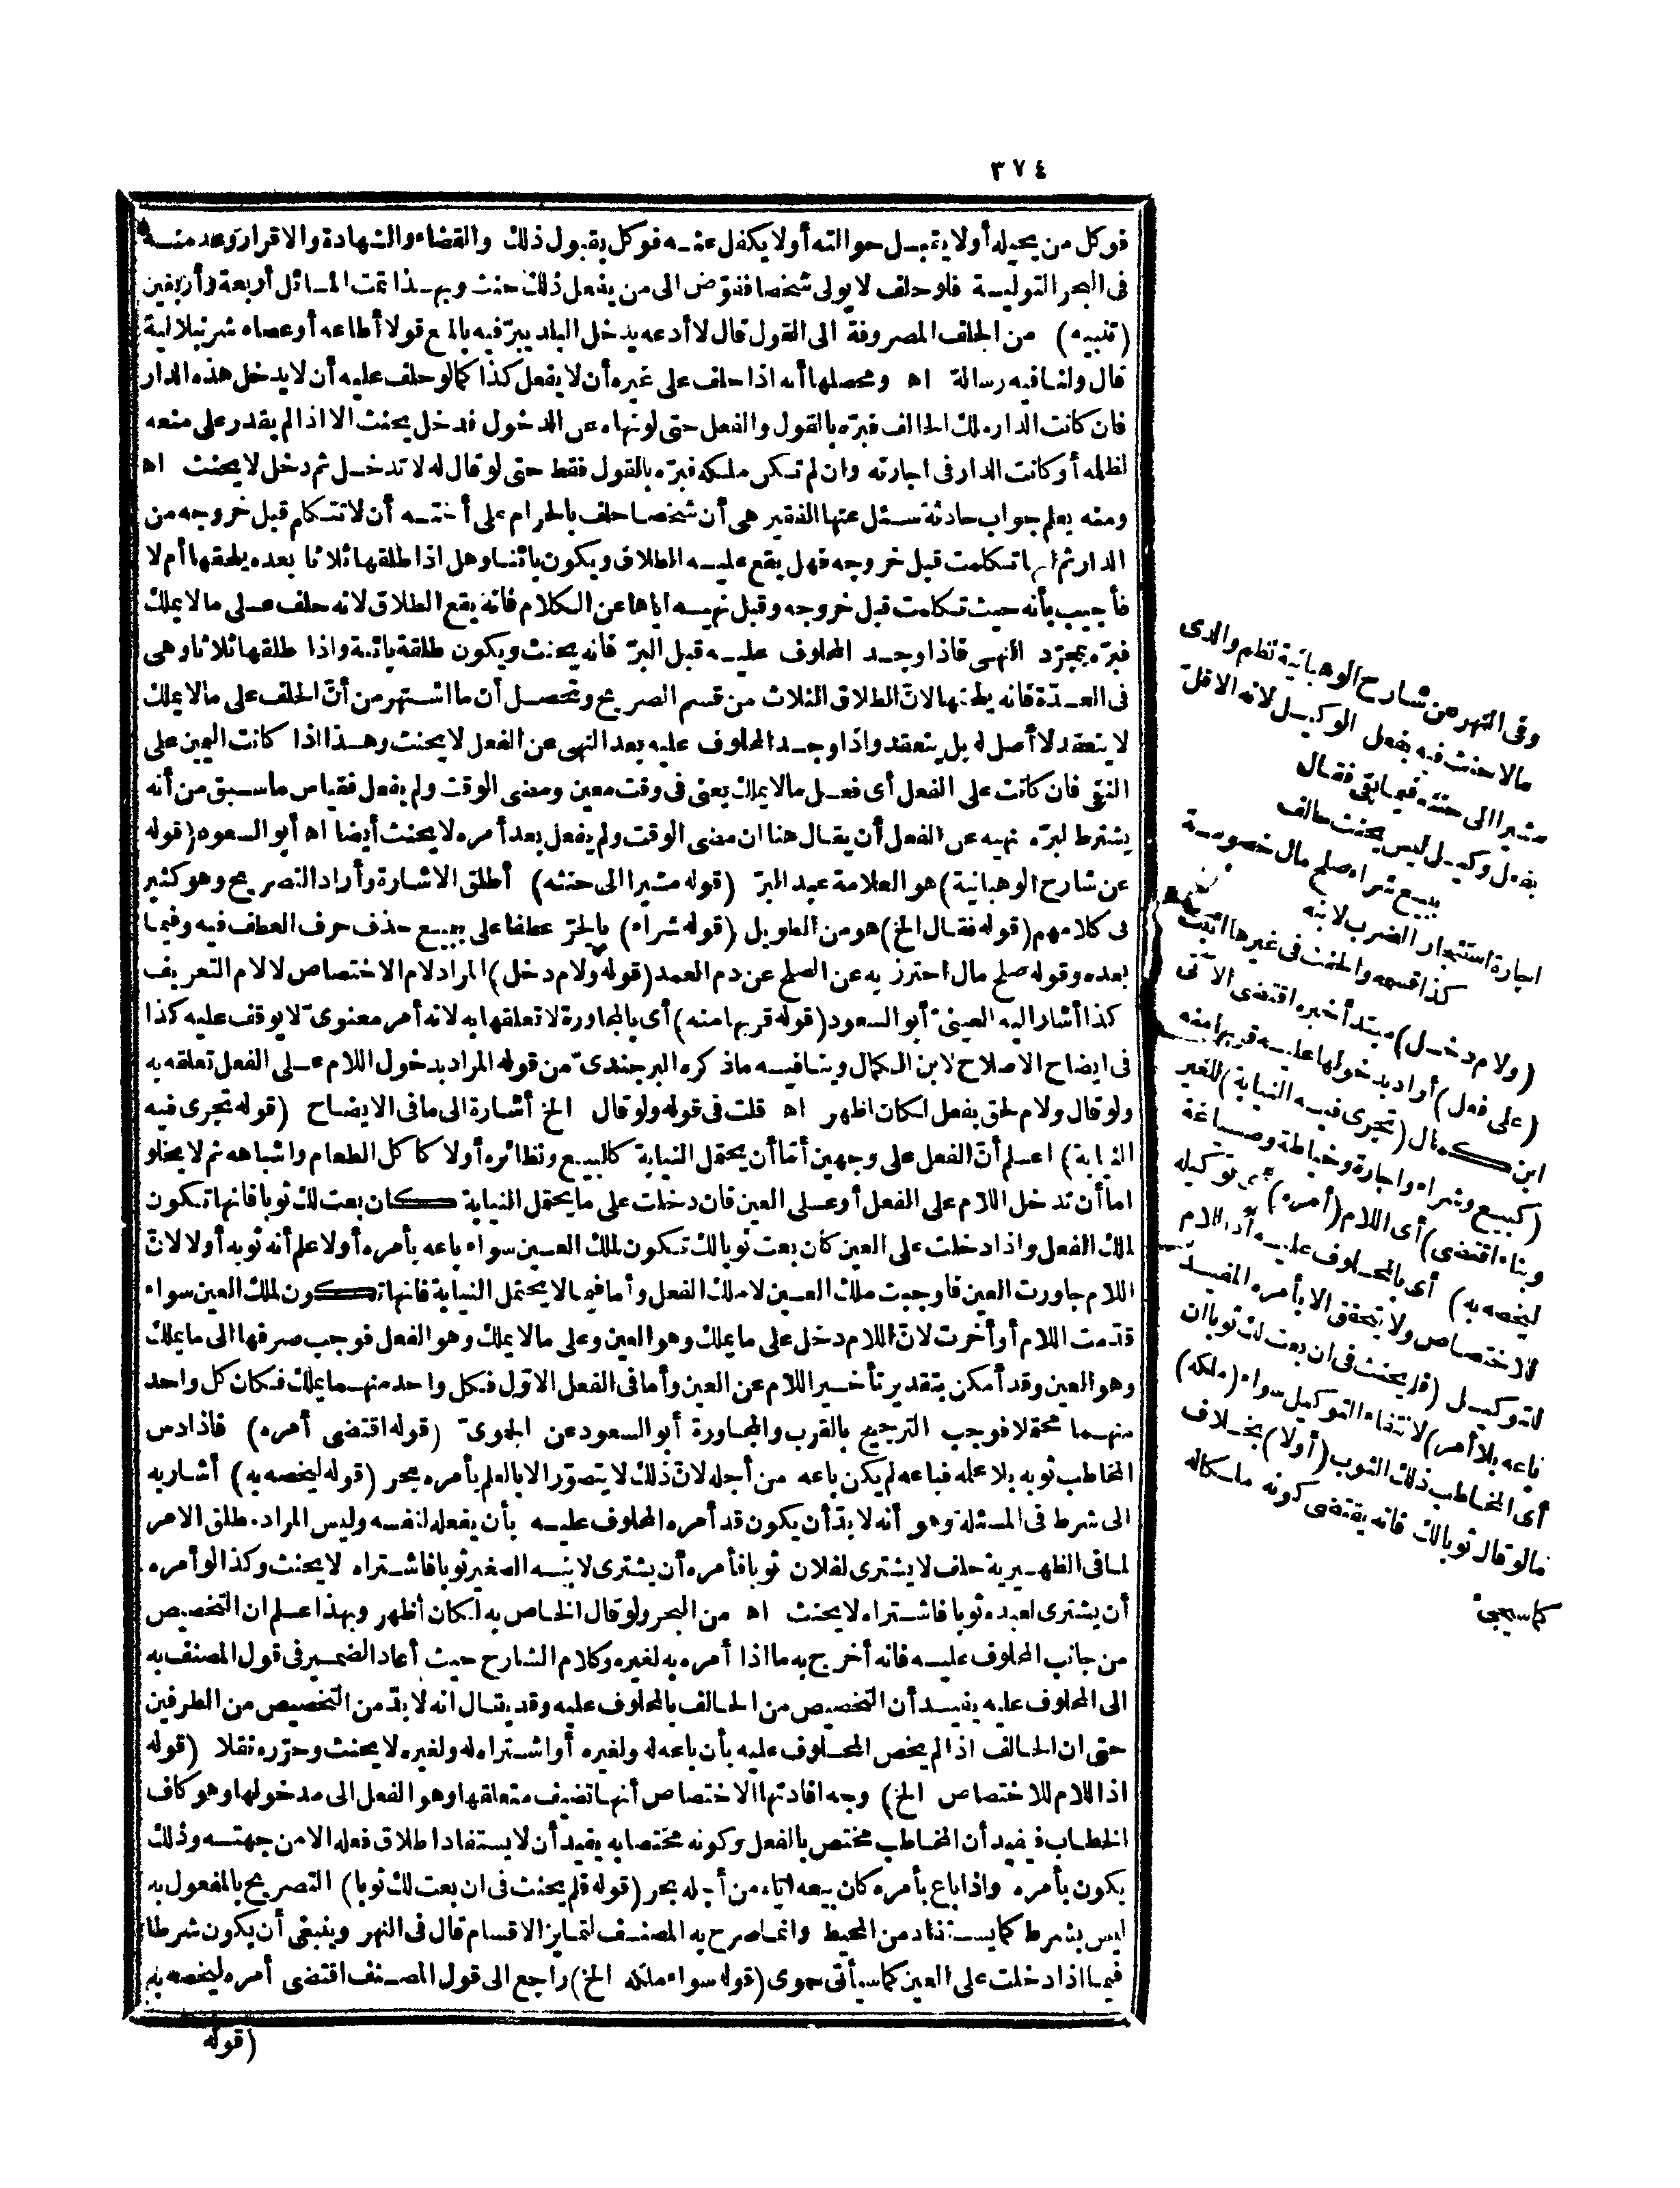 ٣٧٤
فوكل من يحيله أو لا يقبل حوالته أو لا يكفل عنه فوكل بقبول ذلك والقضاء والشهادة والاقرار وعد منه
فى البحر التولية فلو حلف لا يولى شخصا ففوّض الى من يفعل ذلك حنث وبهذا تمت المسائل أربعة وأربعين
(تنبيه) من الحلف المصروفة الى القول قال لا أدعه يدخل البلد يبرّ فيه بالمنع قولا أطاعه أو عصاه شرنبلالية
قال ولنا فيه رسالة اه ومحصلها أنه اذا حلف على غيره أن لا يفعل كذا كما لو حلف عليه أن لا يدخل هذه الدار
فان كانت الدار ملك الحالف فبرّه بالقول والفعل حتى لو نهاه عن الدخول فدخل يحنث الا اذا لم يقدر على منعه
لظلمه أو كانت الدار فى اجارته وان لم تكن ملكه فبرّه بالقول فقط حتى لو قال له لا تدخل ثم دخل لا يحنث اه
ومنه يعلم جواب حادثة سئل عنها الفقير هى أن شخصا حلف بالحرام على أخته أن لا تتكلم قبل خروجه من
الدار ثم انها تكلمت قبل خروجه فهل يقع عليه الطلاق ويكون بائنا وهل اذا طلقها ثلاثا بعده يلحقها أم لا
فأجيب بأنه حيث تكلمت قبل خروجه وقبل نهيه اياها عن الكلام فانه يقع الطلاق لانه حلف على ما لا يملك
فبرّه بمجرّد النهى فاذا وجد المحلوف عليه قبل البرّ فانه يحنث ويكون طلقة بائنة واذا طلقها ثلاثا وهى
فى العدّة فانه يلحقها لانّ الطلاق الثلاث من قسم الصريح وتحصل أن ما اشتهر من أنّ الحلف على ما لا يملك
لا ينعقد لا أصل له بل ينعقد واذا وجد المحلوف عليه بعد النهى عن الفعل لا يحنث وهذا اذا كانت اليمين على
النفى فان كانت على الفعل أى فعل ما لا يملك يعنى فى وقت معين ومضى الوقت ولم يفعل فقياس ما سبق من أنه
يشترط لبرّه نهيه عن الفعل أن يقال هنا ان مضى الوقت ولم يفعل بعد أمره لا يحنث أيضا اه أبو السعود (قوله
عن شارح الوهبانية) هو العلامة عبد البرّ (قوله مشيرا الى حنثه) أطلق الاشارة وأراد التصريح وهو كثير
فى كلامهم (قوله فقال الخ) هو من الطويل (قوله شراء) بالجرّ عطفا على ببيع بحذف حرف العطف فيه وفيما
بعده وقوله صلح مال احترز به عن الصلح عن دم العمد (قوله ولام دخل) المراد لام الاختصاص لا لام التعريف
كذا أشار اليه العينىّ أبو السعود (قوله قربها منه) أى بالمجاورة لا تعلقها به لانه أمر معنوىّ لا يوقف عليه كذا
فى ايضاح الاصلاح لابن الكمال وينافيه ما ذكره البرجندىّ من قوله المراد بدخول اللام على الفعل تعلقه به
ولو قال ولام لحق بفعل لكان اظهر اه قلت فى قوله ولو قال الخ أشارة الى ما فى الايضاح (قوله تجرى فيه
النيابة) اعلم أنّ الفعل على وجهين أمّا أن يحتمل النيابة كالبيع ونظائره أو لا كأكل الطعام واشباهه ثم لا يخلو
اما أن تدخل اللام على الفعل أو على العين فان دخلت على ما يحتمل النيابة كان بعت لك ثوبا فانها تكون
لملك الفعل واذا دخلت على العين كأن بعت ثوبا لك تكون لملك العين سواء باعه بأمره أولا علم أنه ثوبه أولا لانّ
اللام جاورت العين فأوجبت ملك العين لا ملك الفعل وأما فيما لا يحتمل النيابة فانها تكون لملك العين سواء
قدّمت اللام أو أخرت لانّ اللام دخل على ما يملك وهو العين وعلى ما لا يملك وهو الفعل فوجب صرفها الى ما يملك
وهو العين وقد أمكن بتقدير تأخير اللام عن العين وأما فى الفعل الاوّل فكل واحد منهما يملك فكان كل واحد
منهما محتملا فوجب الترجيح بالقرب والمجاورة أبو السعود عن الحموىّ (قوله اقتضى أمره) فاذا دس
المخاطب ثوبه بلا علمه فباعه لم يكن باعه من أجله لانّ ذلك لا يتصوّر الا بالعلم بأمره بحر (قوله ليخصه به) أشار به
الى شرط فى المسئلة وهو أنه لا بدّ أن يكون قد أمره المحلوف عليه بأن يفعله لنفسه وليس المراد مطلق الامر
لما فى الظهيرية حلف لا يشترى لفلان ثوبا فأمره أن يشترى لابنه الصغير ثوبا فاشتراه لا يحنث وكذا لو أمره
أن يشترى لعبده ثوبا فاشتراه لا يحنث اه من البحر ولو قال الخاص به لكان أظهر وبهذا علم ان التخصيص
من جانب المحلوف عليه فانه أخرج به ما اذا أمره به لغيره وكلام الشارح حيث أعاد الضمير فى قول المصنف به
الى المحلوف عليه يفيد أن التخصيص من الحالف بالمحلوف عليه وقد يقال انه لا بدّ من التخصيص من الطرفين
حتى ان الحالف اذا لم يخص المحلوف عليه بأن باعه له ولغيره أو اشتراه له ولغيره لا يحنث وحرّره نقلا (قوله
اذ اللام للاختصاص الخ) وجه افادتها الاختصاص أنها تضيف متعلقها وهو الفعل الى مدخولها وهو كاف
الخطاب فيفيد أن المخاطب مختص بالفعل وكونه مختصا به يفيد أن لا يستفاد اطلاق فعله الا من جهته وذلك
يكون بأمره واذا باع بأمره كان بيعه اياه من أجله بحر (قوله فلم يحنث فى ان بعت لك ثوبا) التصريح بالمفعول به
ليس بشرط كما يستفاد من المحيط وانما صرح به المصنف لتمايز الاقسام قال فى النهر وينبغى أن يكون شرطا
فيما اذا دخلت على العين كما سيأتى حموى (قوله سواء ملكه الخ) راجع الى قول المصنف اقتضى أمره ليخصه به
(قوله
وفى النهر عن شارح الوهبانية نظم والدى
ما لا حنث فيه بفعل الوكيل لانه الاقلّ
مشيرا الى حنثه فيما بقى فقال
بفعل وكيل ليس يحنث حالف
ببيع شراء صلح مال خصومة
اجارة استئجار الضرب لابنه
كذا قسمة والحنث فى غيرها اثبت
(ولام دخل) مبتدأ خبره اقتضى الآتى
(على فعل) أراد بدخولها عليه قربها منه
ابن كمال (تجرى فيه النيابة) للغير
(كبيع وشراء واجارة وخياطة وصياغة
وبناء اقتضى) أى اللام (أمره) توكيله
ليخصه به) أى بالمحلوف عليه اذ اللام
للاختصاص ولا يتحقق الا بأمره المفيد
للتوكيل (فلم يحنث فى ان بعت لك ثوبا ان
باعه بلا أمر) لانتفاء التوكيل سواء (ملكه)
أى المخاطب ذلك الثوب (أولا) بخلاف
ما لو قال ثوبا لك فانه يقتضى كونه ملكا له
كما سيجىء